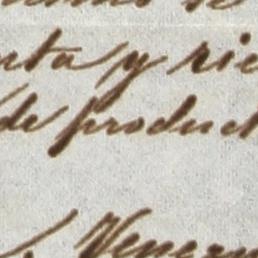 nta y rie
de product
Venezu